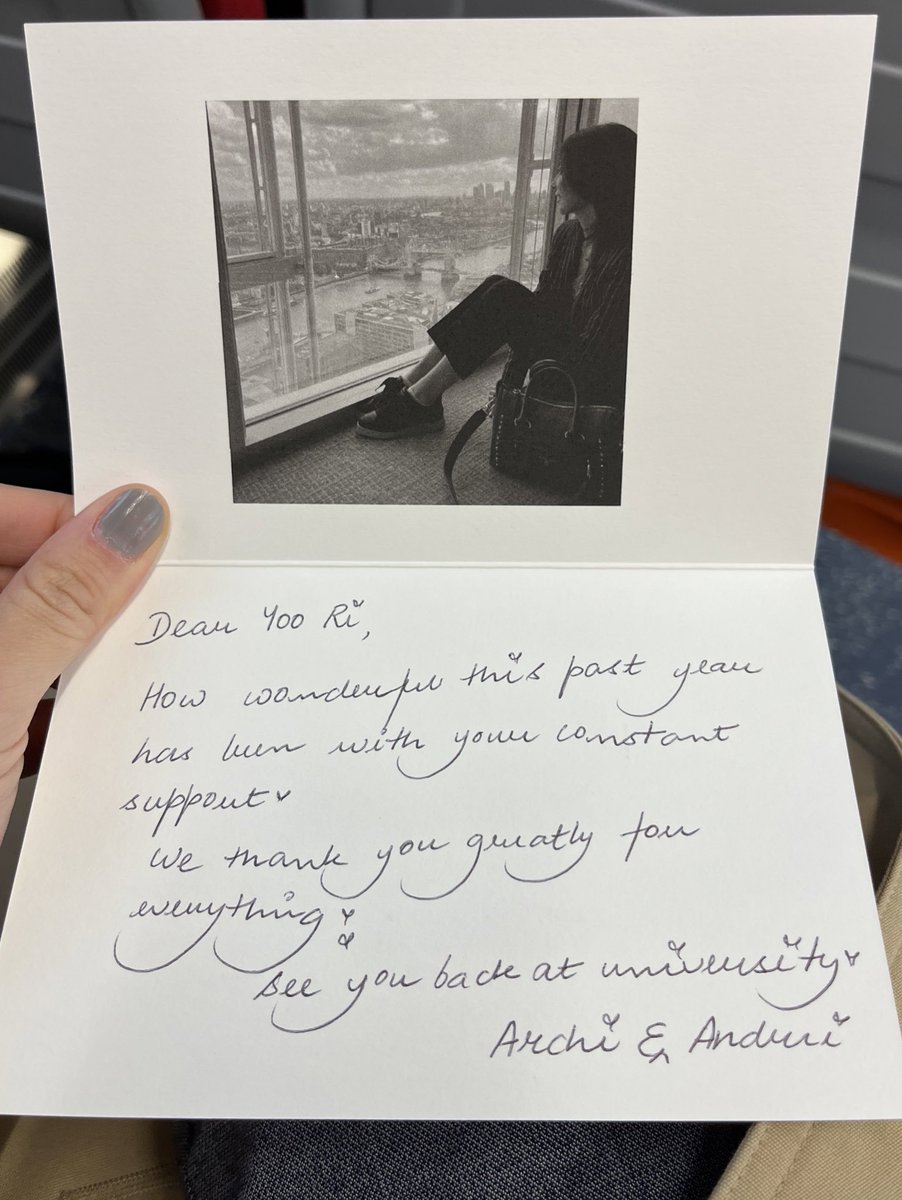 Dear Yoo Ri,
How wonderful this past year
has been with your constant
support
We thank you greatly for
everything
See you back at university
Archi & Andrei